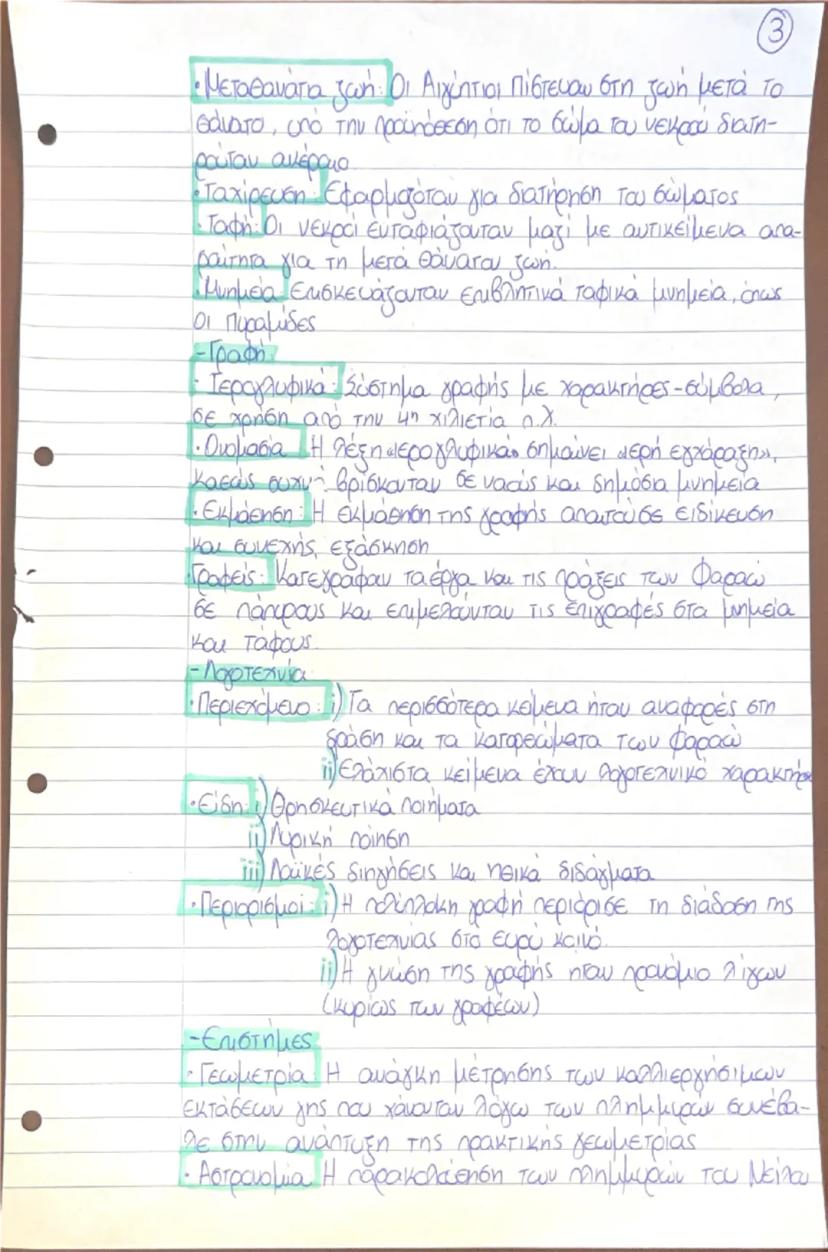 3
· Μεταθανάτια ζωή: Οι Αιγύπτιοι πίστευαν στη ζωή μετά το
θάνατο, υπό την προϋπόθεση ότι το σώμα του νεκρού διατη-
ρούταν ακέραιο
· Ταχίρευση: Εφαρμοζόταν για διατήρηση του σώματος
· Ταφή: Οι νεκροί ενταφιάζονταν μαζί με αντικείμενα απα-
ραίτητα για τη μετά θάνατον ζωή.
· Μνημεία Επισκευάζονταν επιβλητικά ταφικά μνημεία, όπως
οι Πυραμίδες
- Γραφή
· Ιερογλυφικά: Σύστημα γραφής με χαρακτήρες-σύμβολα,
σε χρήση από την 4η χιλιετία π.χ.
· Ονομασία Η λέξη «ιερογλυφικά» σημαίνει «ιερή εγχάραξη»,
καθώς συχνά βρίσκονταν σε ναούς και δημόσια μνημεία
· Εκμάθηση: Η εκμάθηση της γραφής απαιτούσε ειδίκευση
και συνεχής εξάσκηση
Γραφείς: Κατέγραφαν τα έργα και τις πράξεις των Φαραώ
σε πάπυρους και επιμελούνταν τις επιγραφές στα μνημεία
και τάφους.
- Λογοτεχνία
· Περιεχόμενο: i) Τα περισσότερα κείμενα ήταν αναφορές στη
δράση και τα κατορθώματα των φαραώ
ii) Ελάχιστα κείμενα έχουν λογοτεχνικό χαρακτήρα
· Είδη: i) Θρησκευτικά ποιήματα
ii) Λυρική ποίηση
iii) Λαϊκές διηγήσεις και ηθικά διδάγματα
· Περιορισμοί: i) Η πολύπλοκη γραφή περιόρισε τη διάδοση της
λογοτεχνίας στο ευρύ κοινό.
ii) Η γνώση της γραφής ήταν προνόμιο λίγων
(κυρίως των γραφέων)
- Επιστήμες
· Γεωμετρία: Η ανάγκη μέτρησης των καλλιεργήσιμων
εκτάσεων γης που χάνονταν λόγω των πλημμυρών συνέβα-
λε στην ανάπτυξη της πρακτικής γεωμετρίας
· Αστρονομία Η παρακολούθηση των πλημμυρών του Νείλου